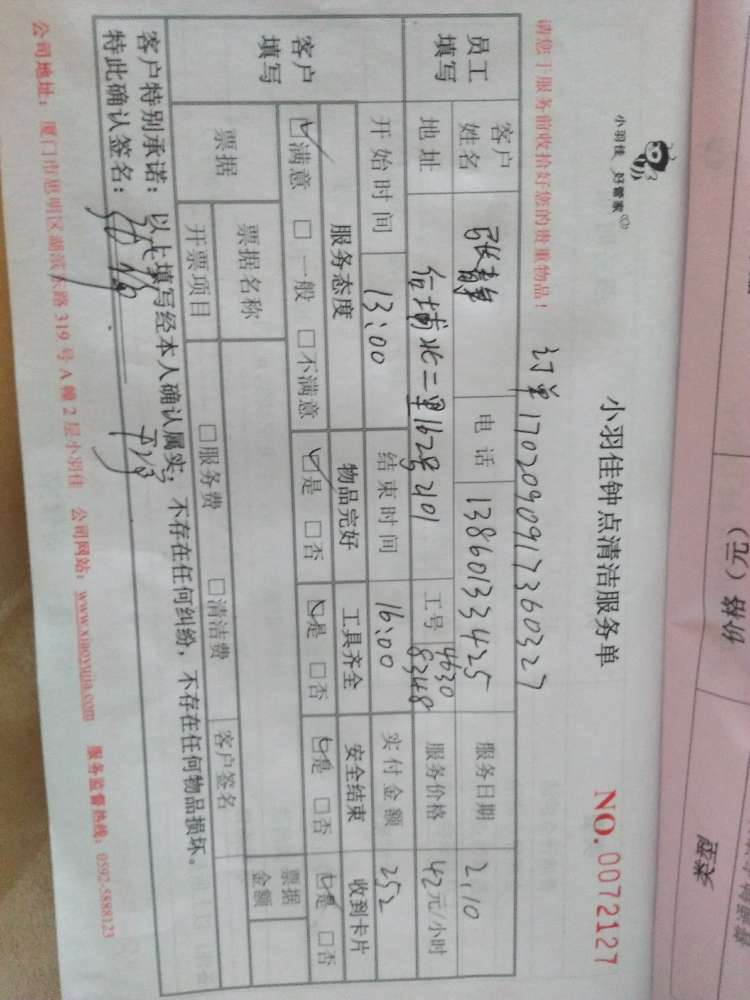 小羽佳 好管家
小羽佳钟点清洁服务单
NO.0072127
请您于服务前收拾好您的贵重物品！
订单1702090917360327
员工填写
客户姓名 电话 13860133425 服务日期 2.10
地址 北二里162号2101 工号 4630 8348 服务价格 42元/小时
开始时间 13:00 结束时间 16:00 实付金额 252
客户填写
服务态度 物品完好 工具齐全 安全结束 收到卡片
☑满意 □一般 □不满意 ☑是 □否 ☑是 □否 ☑是 □否 ☑是 □否
票据 票据名称 客户签名 票据金额
开票项目 □服务费 □清洁费
客户特别承诺：以上填写经本人确认属实，不存在任何纠纷，不存在任何物品损坏。
特此确认签名：
公司地址：厦门市思明区湖滨东路319号A幢2层小羽佳 公司网站：www.xiaoyujia.com 服务监督热线：0592-5888123
价格（元）
类型